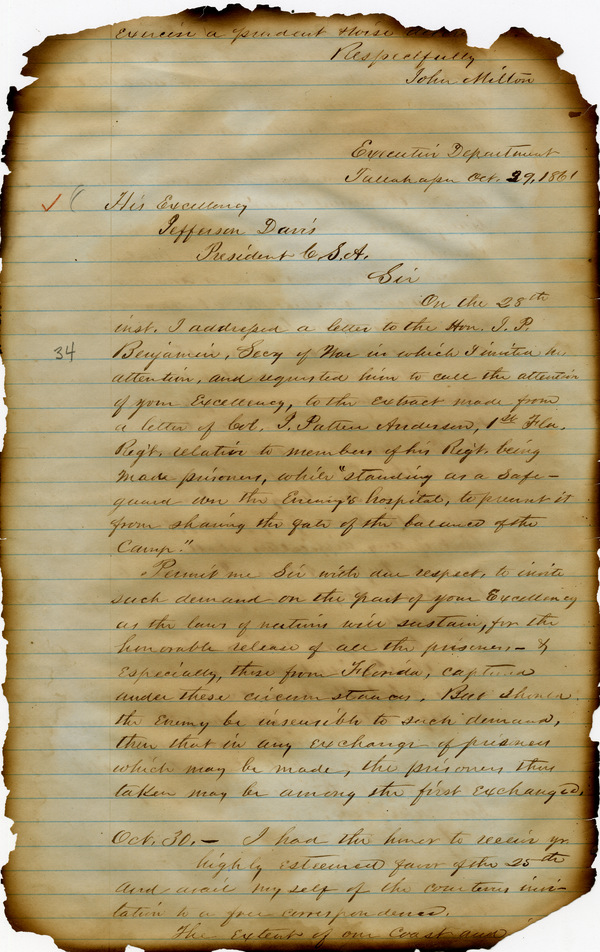 Exercise a prudent
Respectfully
John Milton
Executive Department
Tallahassee Oct. 29, 1861
His Excellency
Jefferson Davis
President C.S.A.
Sir
34
On the 28th
inst. I addressed a letter to the Hon. J. P.
Benjamin, Secy of War in which I invited his
attention, and requested him to call the attention
of your Excellency, to the extract made from
a letter of Col. J. Patten Anderson, 1st Fla.
Regt. relative to members of his Regt. being
made prisoners, while "standing as a Safe-
guard over the Enemy's hospital, to prevent it
from sharing the fate of the balance of the
Camp."
Permit me Sir with due respect, to invite
such demand on the part of your Excellency
as the laws of nations will sustain, for the
honorable release of all the prisoners - &
Especially, those from Florida, captured
under these circumstances. But should
the Enemy be insensible to such demand,
then that in any exchange of prisoners
which may be made, the prisoners thus
taken may be among the first exchanged.
Oct. 30. - I had the honor to receive yr.
highly esteemed favor of the 25th
and avail myself of the courteous invi-
tation to a free correspondence.
The Extent of our Coast and